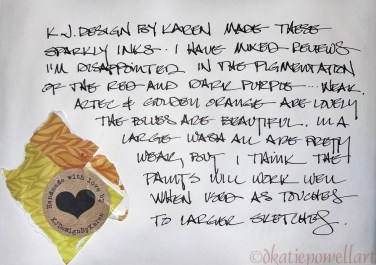 K.J. DESIGN BY KAREN MADE THESE
SPARKLY INKS.. I HAVE MIXED REVIEWS
I'M DISAPPOINTED IN THE PIGMENTATION
OF THE RED AND DARK PURPLE... WEAK.
AZTEC & GOLDEN ORANGE ARE LOVELY
THE BLUES ARE BEAUTIFUL. IN A
LARGE WASH ALL ARE PRETTY
WEAK, BUT I THINK THE
PAINTS WILL WORK WELL
WHEN USED AS TOUCHES
TO LARGER SKETCHES.
Handmade with love by
KJDesignByKaren
©dkatiepowellart